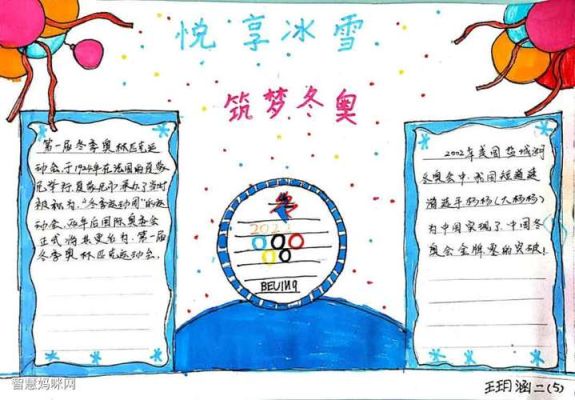 悦享冰雪
筑梦冬奥
第一届冬季奥林匹克运
动会于1924年在法国的夏蒙
尼举行,夏蒙尼市承办了当时
被称为:“冬季运动周”的运
动会,两年后国际奥委会
正式将其更名为:第一届
冬季奥林匹克运动会.
2022
BEIJING
2002年美国盐城湖
冬奥会中,我国短道速
滑选手杨杨(大杨杨)
为中国实现了中国冬
奥会金牌零的突破!
智慧妈咪网
王玥涵二(5)